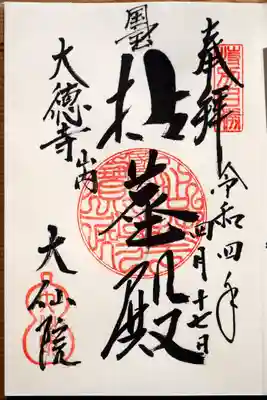 奉拝
令和四年
四月十七日
拈華殿
大徳寺山内
大仙院